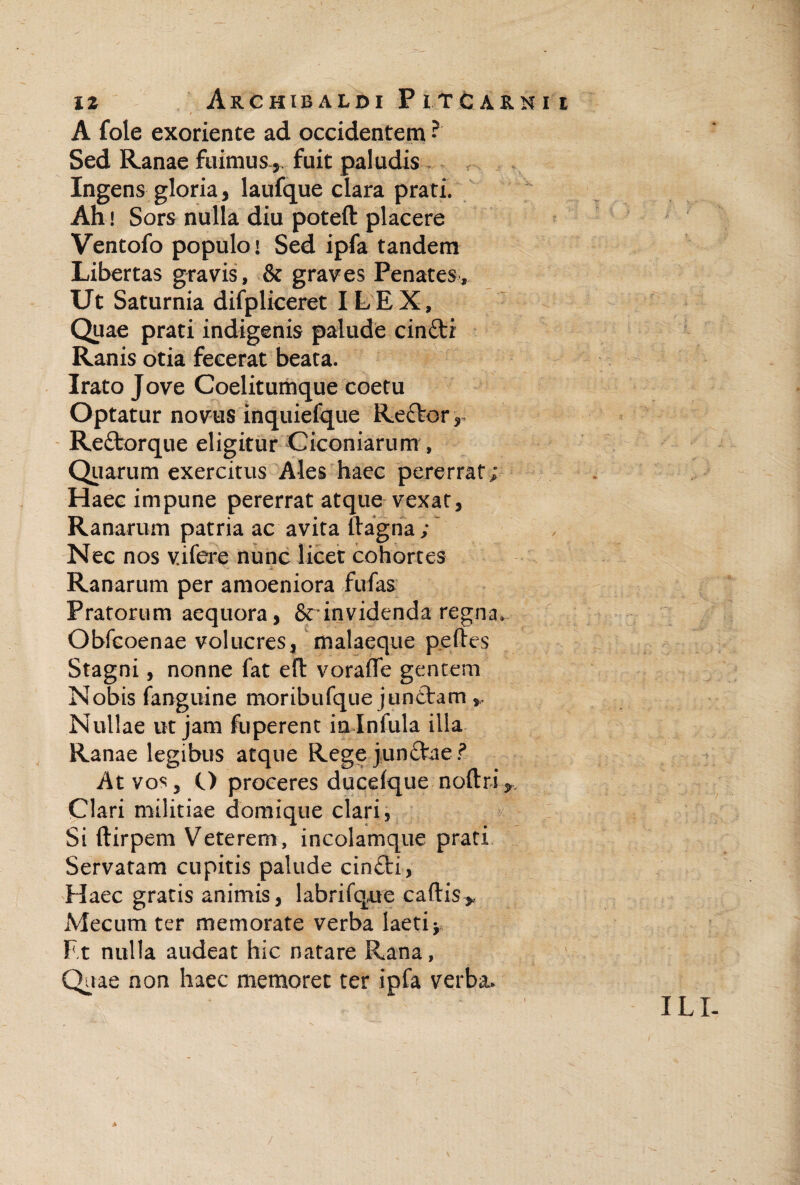 12 ARCHIBALDI PITCARNII
A ſole exoriente ad occidentem?
Sed Ranae fuimus, fuit paludis
Ingens gloria, lauſque clara prati.
Ah! Sors nulla diu poteſt placere
Ventoſo populo! Sed ipſa tandem
Libertas gravis, & graves Penates,
Ut Saturnia diſpliceret ILEX,
Quae prati indigenis palude cincti
Ranis otia fecerat beata.
Irato Jove Coelitumque coetu
Optatur novus inquieſque Rector,
Rectorque eligitur Ciconiarum,
Quarum exercitus Ales haec pererrat;
Haec impune pererrat atque vexat,
Ranarum patria ac avita ſtagna;
Nec nos viſere nunc licet cohortes
Ranarum per amoeniora fuſas
Pratorum aequora, & invidenda regna.
Obſcoenae volucres, malaeque peſtes
Stagni, nonne ſat eſt voraſſe gentem
Nobis ſanguine moribuſque junctam,
Nullae ut jam ſuperent in Inſula illa
Ranae legibus atque Rege junctae?
At vos, O proceres duceſque noſtri,
Clari militiae domique clari,
Si ſtirpem Veterem, incolamque prati
Servatam cupitis palude cincti,
Haec gratis animis, labriſque caſtis,
Mecum ter memorate verba laeti;
Et nulla audeat hic natare Rana,
Quae non haec memoret ter ipſa verba.
ILI-